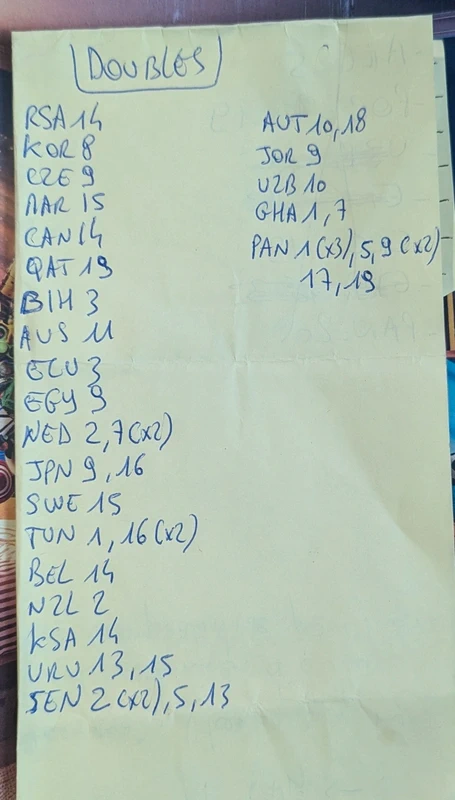 DOUBLES
RSA 14
KOR 8
CZE 9
MAR 15
CAN 14
QAT 19
BIH 3
AUS 11
ECU 3
EGY 9
NED 2,7(x2)
JPN 9,16
SWE 15
TUN 1,16(x2)
BEL 14
NZL 2
KSA 14
URU 13,15
SEN 2(x2),5,13
AUT 10,18
JOR 9
UZB 10
GHA 1,7
PAN 1(x3),5,9(x2)
17,19